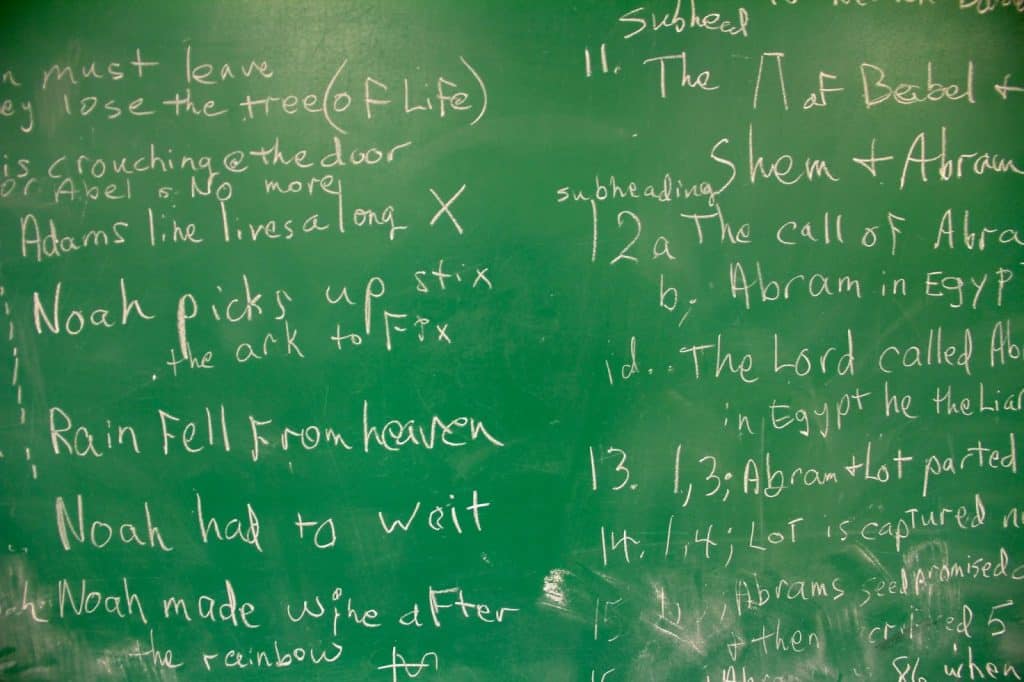 must leave
lose the tree (of Life)
is crouching @ the door
or Abel & No more
Adams line lives along X
Noah picks up stix
the ark to Fix
Rain Fell From heaven
Noah had to wait
Noah made wine after
the rainbow
Subhead
11. The Π of Babel +
Shem + Abram
subheading
12a The call of Abra
b; Abram in Egyp
d.. The Lord called Ab
in Egypt he the Liar
13. 1,3; Abram + Lot parted
14. 1,4; Lot is captured
15 Abrams seed promised
+ then 5
86 when